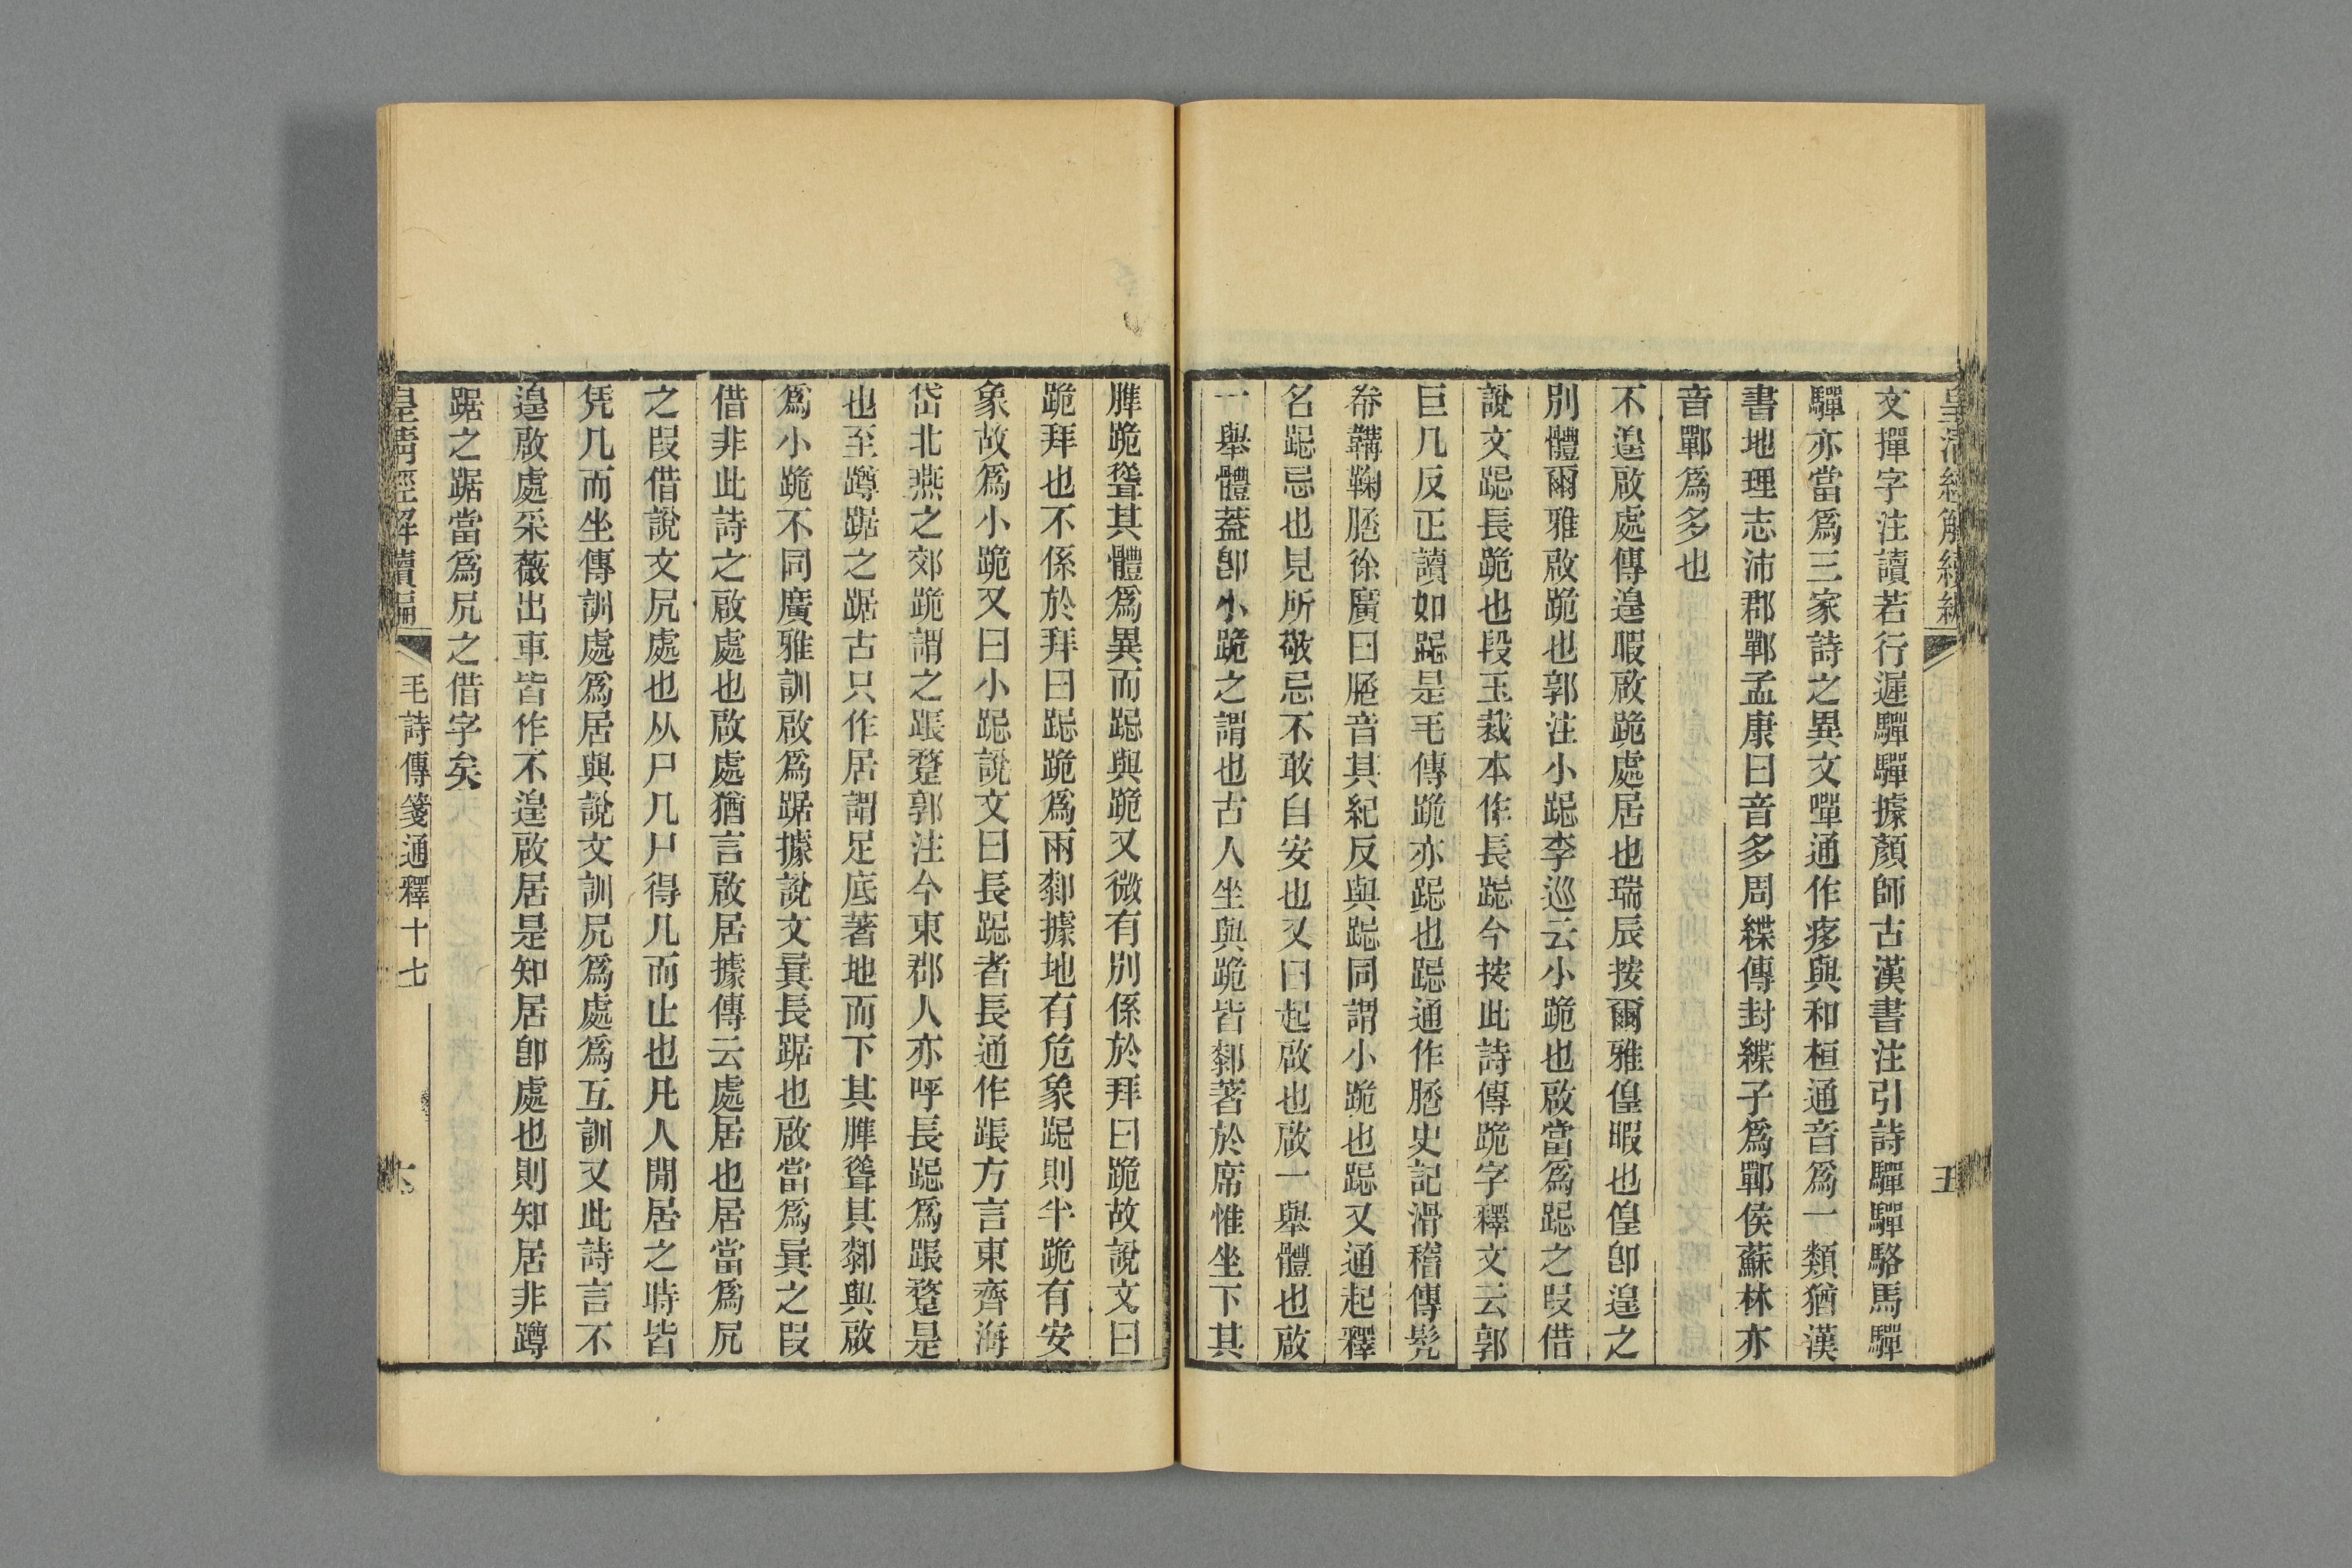 皇清經解續編
五
文撣字注讀若行遲驒驒據顏師古漢書注引詩驒驒駱馬驒
驒亦當爲三家詩之異文嘽通作痑與和桓通音爲一類猶漢
書地理志沛郡鄲孟康曰音多周緤傳封緤子爲鄲侯蘇林亦
音鄲爲多也
不遑啟處傳遑暇啟跪處居也瑞辰按爾雅偟暇也偟卽遑之
別體爾雅啟跪也郭注小跽李巡云小跪也啟當爲跽之叚借
說文跽長跪也段玉裁本作長跽今按此詩傳跪字釋文云郭
巨几反正讀如跽是毛傳跪亦跽也跽通作䠆史記滑稽傳髡
帣韝鞠䠆徐廣曰䠆音其紀反與跽同謂小跪也跽又通起釋
名跽忌也見所敬忌不敢自安也又曰起啟也啟一舉體也啟
一舉體蓋卽小跪之謂也古人坐與跪皆厀著於席惟坐下其
脾跪聳其體爲異而跽與跪又微有別係於拜曰跪故說文曰
跪拜也不係於拜曰跽跪爲兩厀據地有危象跽則半跪有安
象故爲小跪又曰小跽說文曰長跽者長通作䠆方言東齊海
岱北燕之郊跪謂之䠆䠆郭注今東郡人亦呼長跽爲䠆䠆是
也至蹲踞之踞古只作居謂足底著地而下其脾聳其厀與啟
爲小跪不同廣雅訓啟爲踞據說文㠱長踞也啟當爲㠱之叚
借非此詩之啟處也啟處猶言啟居據傳云處居也居當爲凥
之叚借說文凥處也从尸几尸得几而止也凡人閒居之時皆
凭几而坐傳訓處爲居與說文訓凥爲處爲互訓又此詩言不
遑啟處采薇出車皆作不遑啟居是知居卽處也則知居非蹲
踞之踞當爲凥之借字矣
皇清經解續編
毛詩傳箋通釋十七